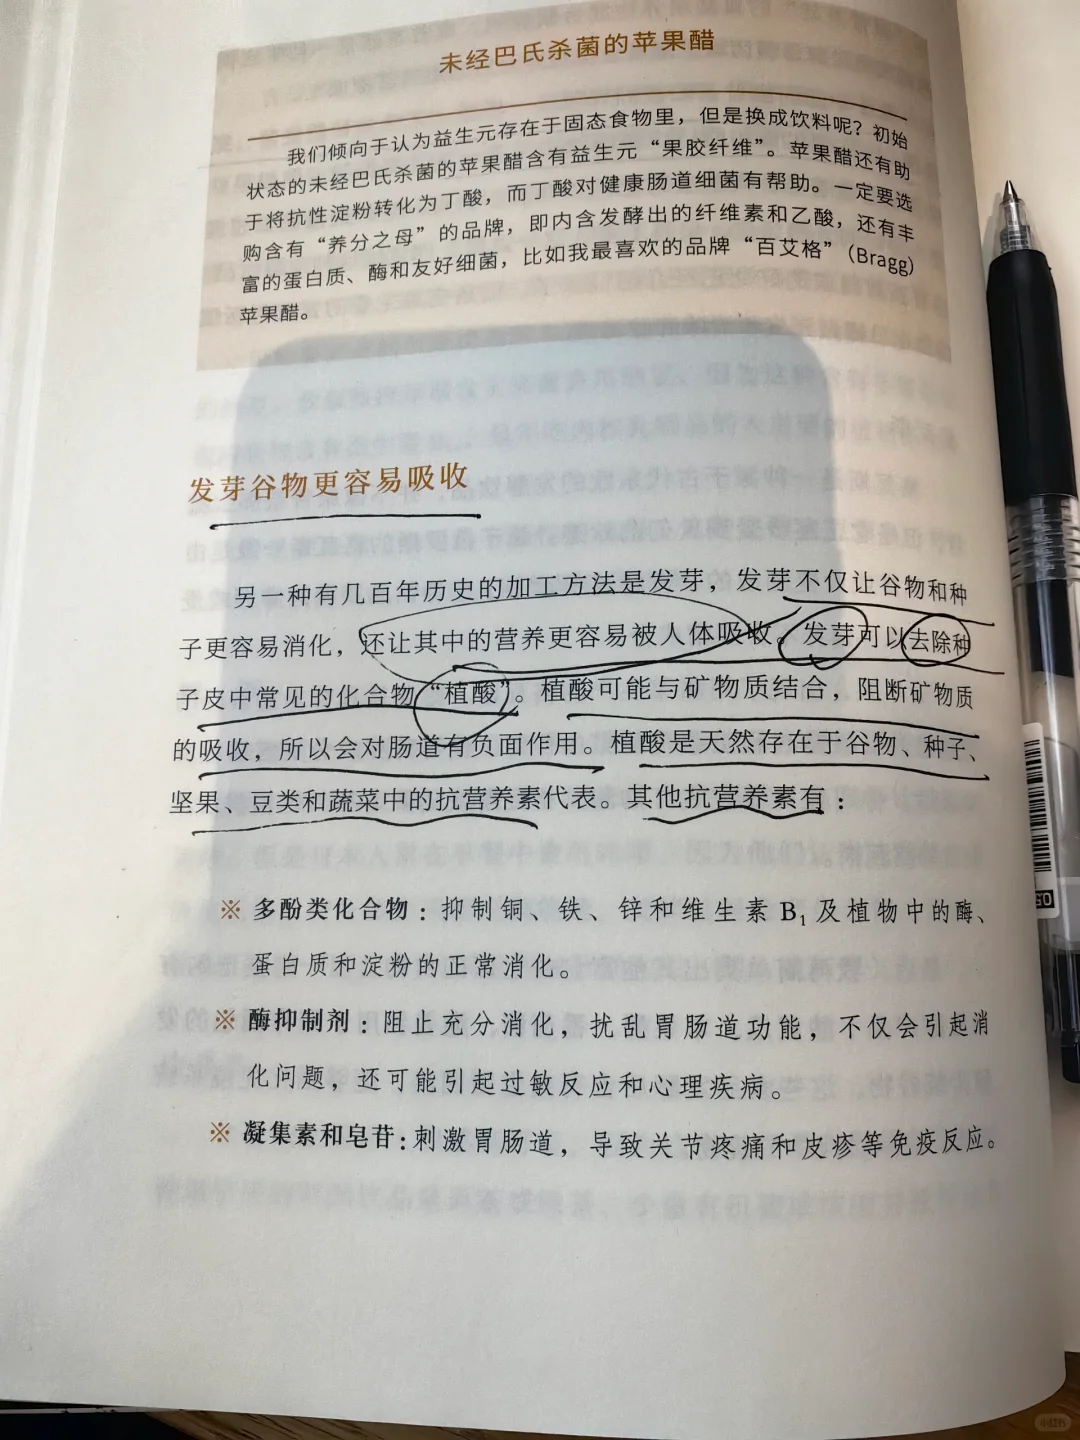 未经巴氏杀菌的苹果醋
我们倾向于认为益生元存在于固态食物里，但是换成饮料呢？初始
状态的未经巴氏杀菌的苹果醋含有益生元“果胶纤维”。苹果醋还有助
于将抗性淀粉转化为丁酸，而丁酸对健康肠道细菌有帮助。一定要选
购含有“养分之母”的品牌，即内含发酵出的纤维素和乙酸，还有丰
富的蛋白质、酶和友好细菌，比如我最喜欢的品牌“百艾格”（Bragg）
苹果醋。
发芽谷物更容易吸收
另一种有几百年历史的加工方法是发芽，发芽不仅让谷物和种
子更容易消化，还让其中的营养更容易被人体吸收。发芽可以去除种
子皮中常见的化合物“植酸”。植酸可能与矿物质结合，阻断矿物质
的吸收，所以会对肠道有负面作用。植酸是天然存在于谷物、种子、
坚果、豆类和蔬菜中的抗营养素代表。其他抗营养素有：
※ 多酚类化合物：抑制铜、铁、锌和维生素 B₁ 及植物中的酶、
蛋白质和淀粉的正常消化。
※ 酶抑制剂：阻止充分消化，扰乱胃肠道功能，不仅会引起消
化问题，还可能引起过敏反应和心理疾病。
※ 凝集素和皂苷：刺激胃肠道，导致关节疼痛和皮疹等免疫反应。
小红书